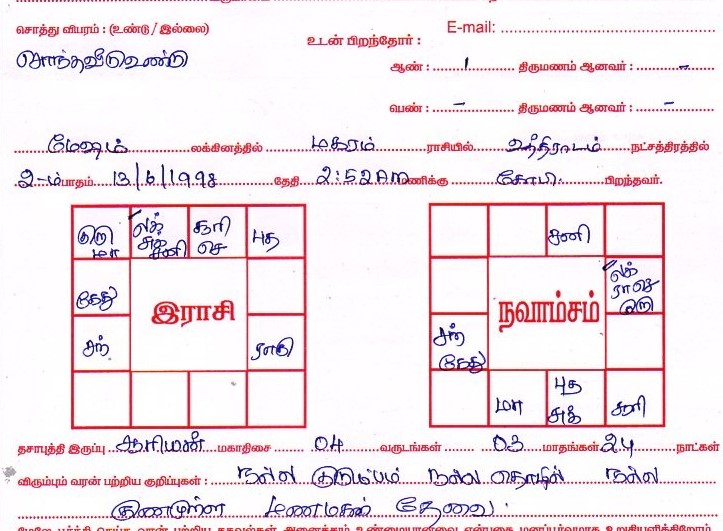 சொத்து விபரம் : (உண்டு / இல்லை)
E-mail:
உடன் பிறந்தோர் :
சொந்தவீடு உண்டு
ஆண் : 1 திருமணம் ஆனவர் : –
பெண் : – திருமணம் ஆனவர் : –
மேஷம் லக்கினத்தில் மகரம் ராசியில் உத்திராடம் நட்சத்திரத்தில்
2-ம் பாதம் 13/6/1998 தேதி 2:52 AM மணிக்கு கோபி பிறந்தவர்.
குரு மா
லக் சுக் சனி
சூரி செ
புத
கேது
சந்
ராகு
இராசி
சனி
லக் ராகு குரு
சந் கேது
மா
புத சுக்
சூரி
நவாம்சம்
தசாபுத்தி இருப்பு சூரியன் மகாதிசை 04 வருடங்கள் 03 மாதங்கள் 24 நாட்கள்
விரும்பும் வரன் பற்றிய குறிப்புகள் : நல்ல குடும்பம் நல்ல தொழில் நல்ல
குணமுள்ள மணமகன் தேவை.